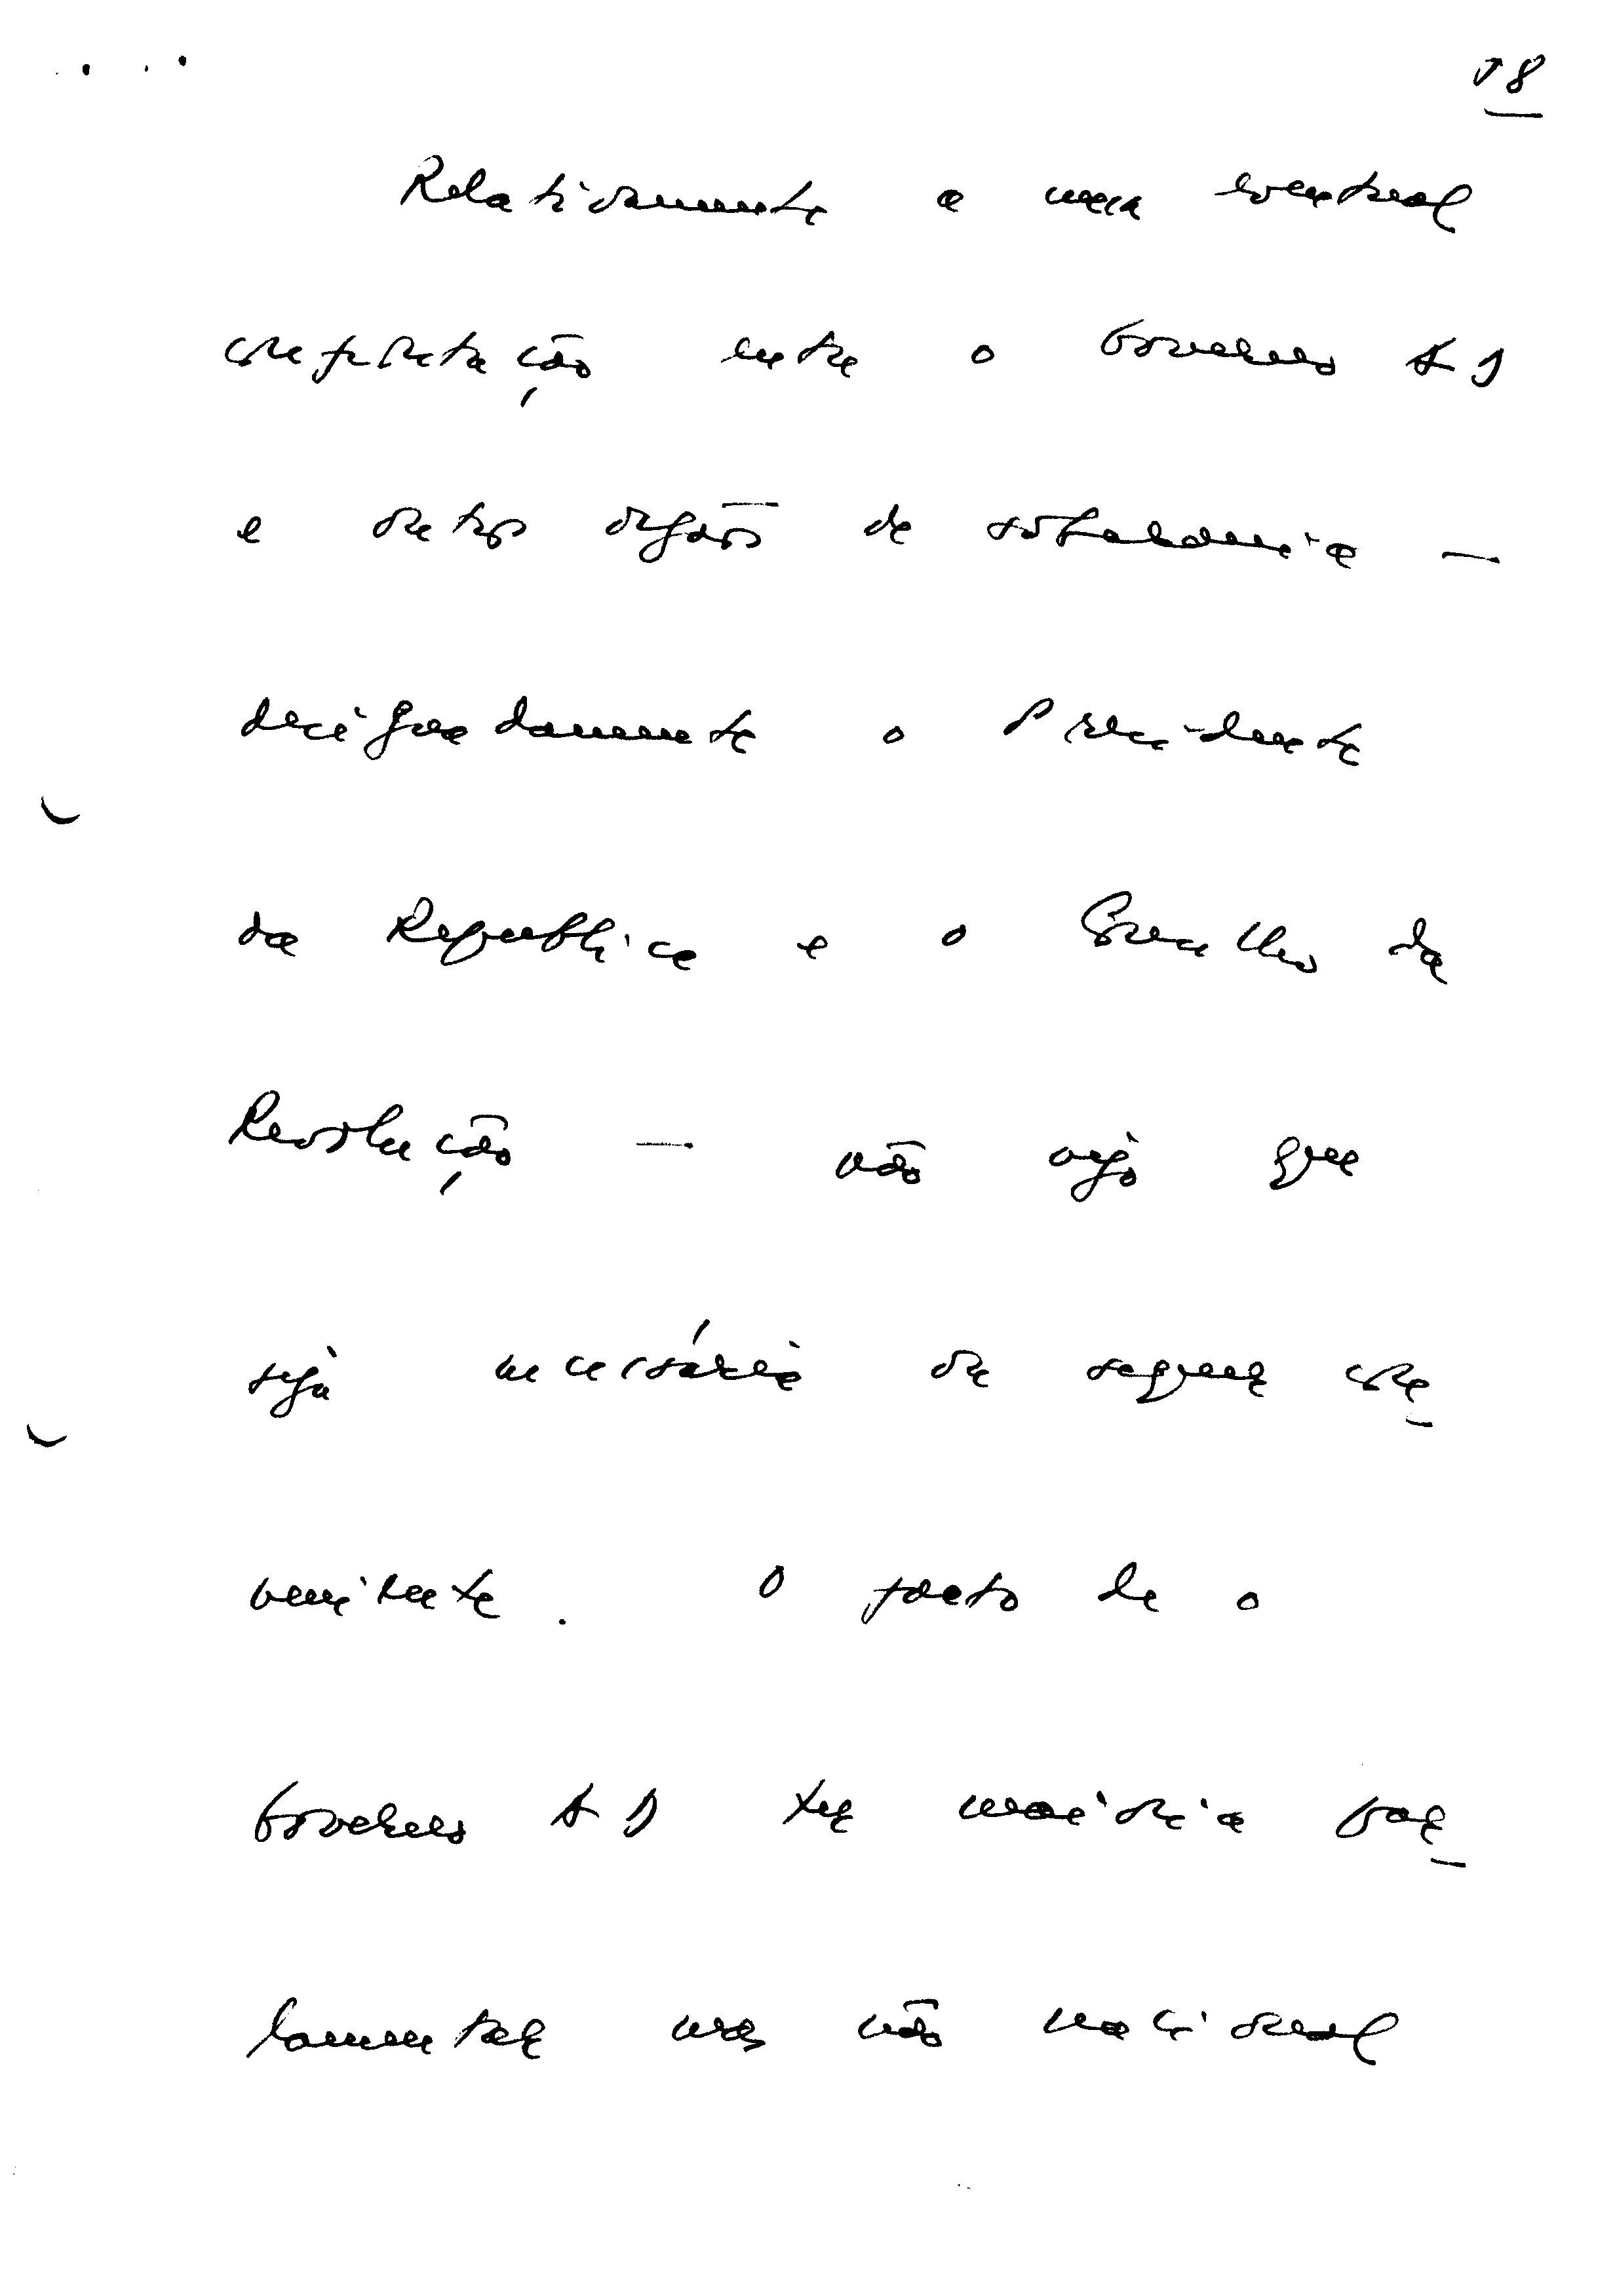 18
Relativamente a uma eventual
confrontação entre o Governo AD
e outros orgãos de soberania —
designadamente o Presidente
da Republica e o Conselho da
Revolução — não vejo que
seja necessária ou sequer con-
veniente. O facto de o
Governo AD ter maioria par-
lamentar mas não nacional